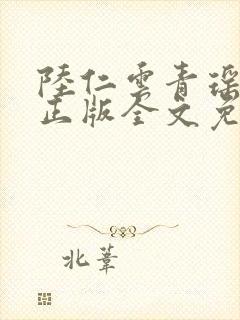 陸仁雲青瑶
正版全文免
北葦